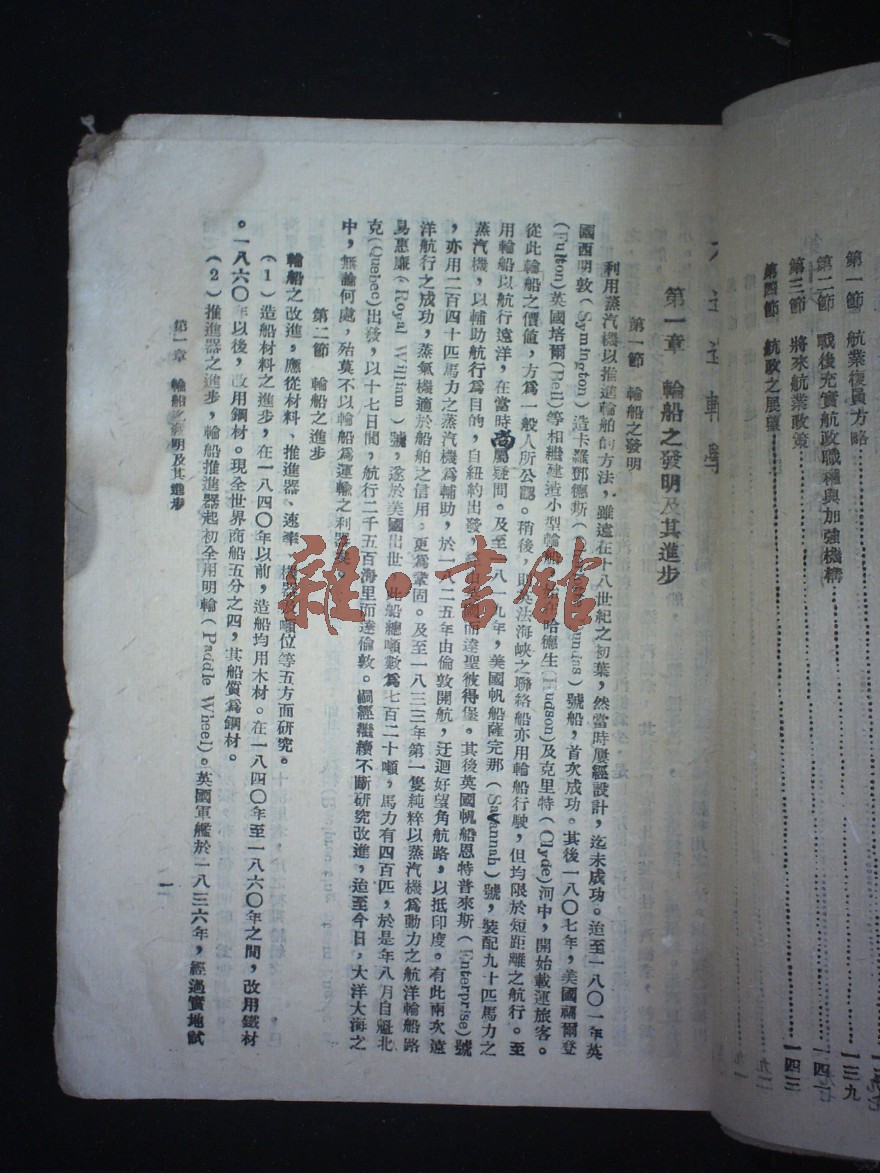 第一節 航業復員方略
第二節 戰後充實航政職權與加強機構
一三九
第三節 將來航業政策
一四二
第四節 航政之展望
一四三
水運運輸學
第一章 輪船之發明及其進步
第一節 輪船之發明
利用蒸汽機以推進輪舶的方法，雖遠在十八世紀之初葉，然當時屢經設計，迄未成功。迨至一八〇一年英
國西明敦（Symington）造卡羅鄧德斯（ 號船，首次成功。其後一八〇七年，美國福爾登
（Fulton）英國培爾（Bell）等相繼建造小型輪船，在哈德生（Hudson）及克里特（Clyde）河中，開始載運旅客。
從此輪船之價値，方爲一般人所公認。稍後，即英法海峽之聯絡船亦用輪船行駛，但均限於短距離之航行。至
用輪船以航行遠洋，在當時尚屬疑問。及至一八一九年，美國帆船薩完那（Savannah）號，裝配九十匹馬力之
蒸汽機，以輔助航行爲目的，自紐約出發，而達聖彼得堡。其後英國帆船恩特普來斯（Enterprise）號
，亦用二百四十匹馬力之蒸汽機爲輔助，於一八二五年由倫敦開航，迂迴好望角航路，以抵印度。有此兩次遠
洋航行之成功，蒸氣機適於船舶之信用，更爲鞏固。及至一八三三年第一隻純粹以蒸汽機爲動力之航洋輪船路
易惠廉（Royal William）號，遂於美國出世，此船總噸數爲七百二十噸，馬力有四百匹，於是年八月自魁北
克（Quebec）出發，以十七日間，航行二千五百海里而達倫敦。嗣經繼續不斷研究改進，迨至今日，大洋大海之
中，無論何處，殆莫不以輪船爲運輸之利器矣。
第二節 輪船之進步
輪船之改進，應從材料、推進器、速率、機器及噸位等五方面研究。
（1）造船材料之進步，在一八四〇年以前，造船均用木材。在一八四〇年至一八六〇年之間，改用鐵材
。一八六〇年以後，改用鋼材。現全世界商船五分之四，其船質爲鋼材。
（2）推進器之進步，輪船推進器起初全用明輪（Paddle Wheel）。英國軍艦於一八三六年，經過實地試
第一章 輪船之發明及其進步
一
雜·書館